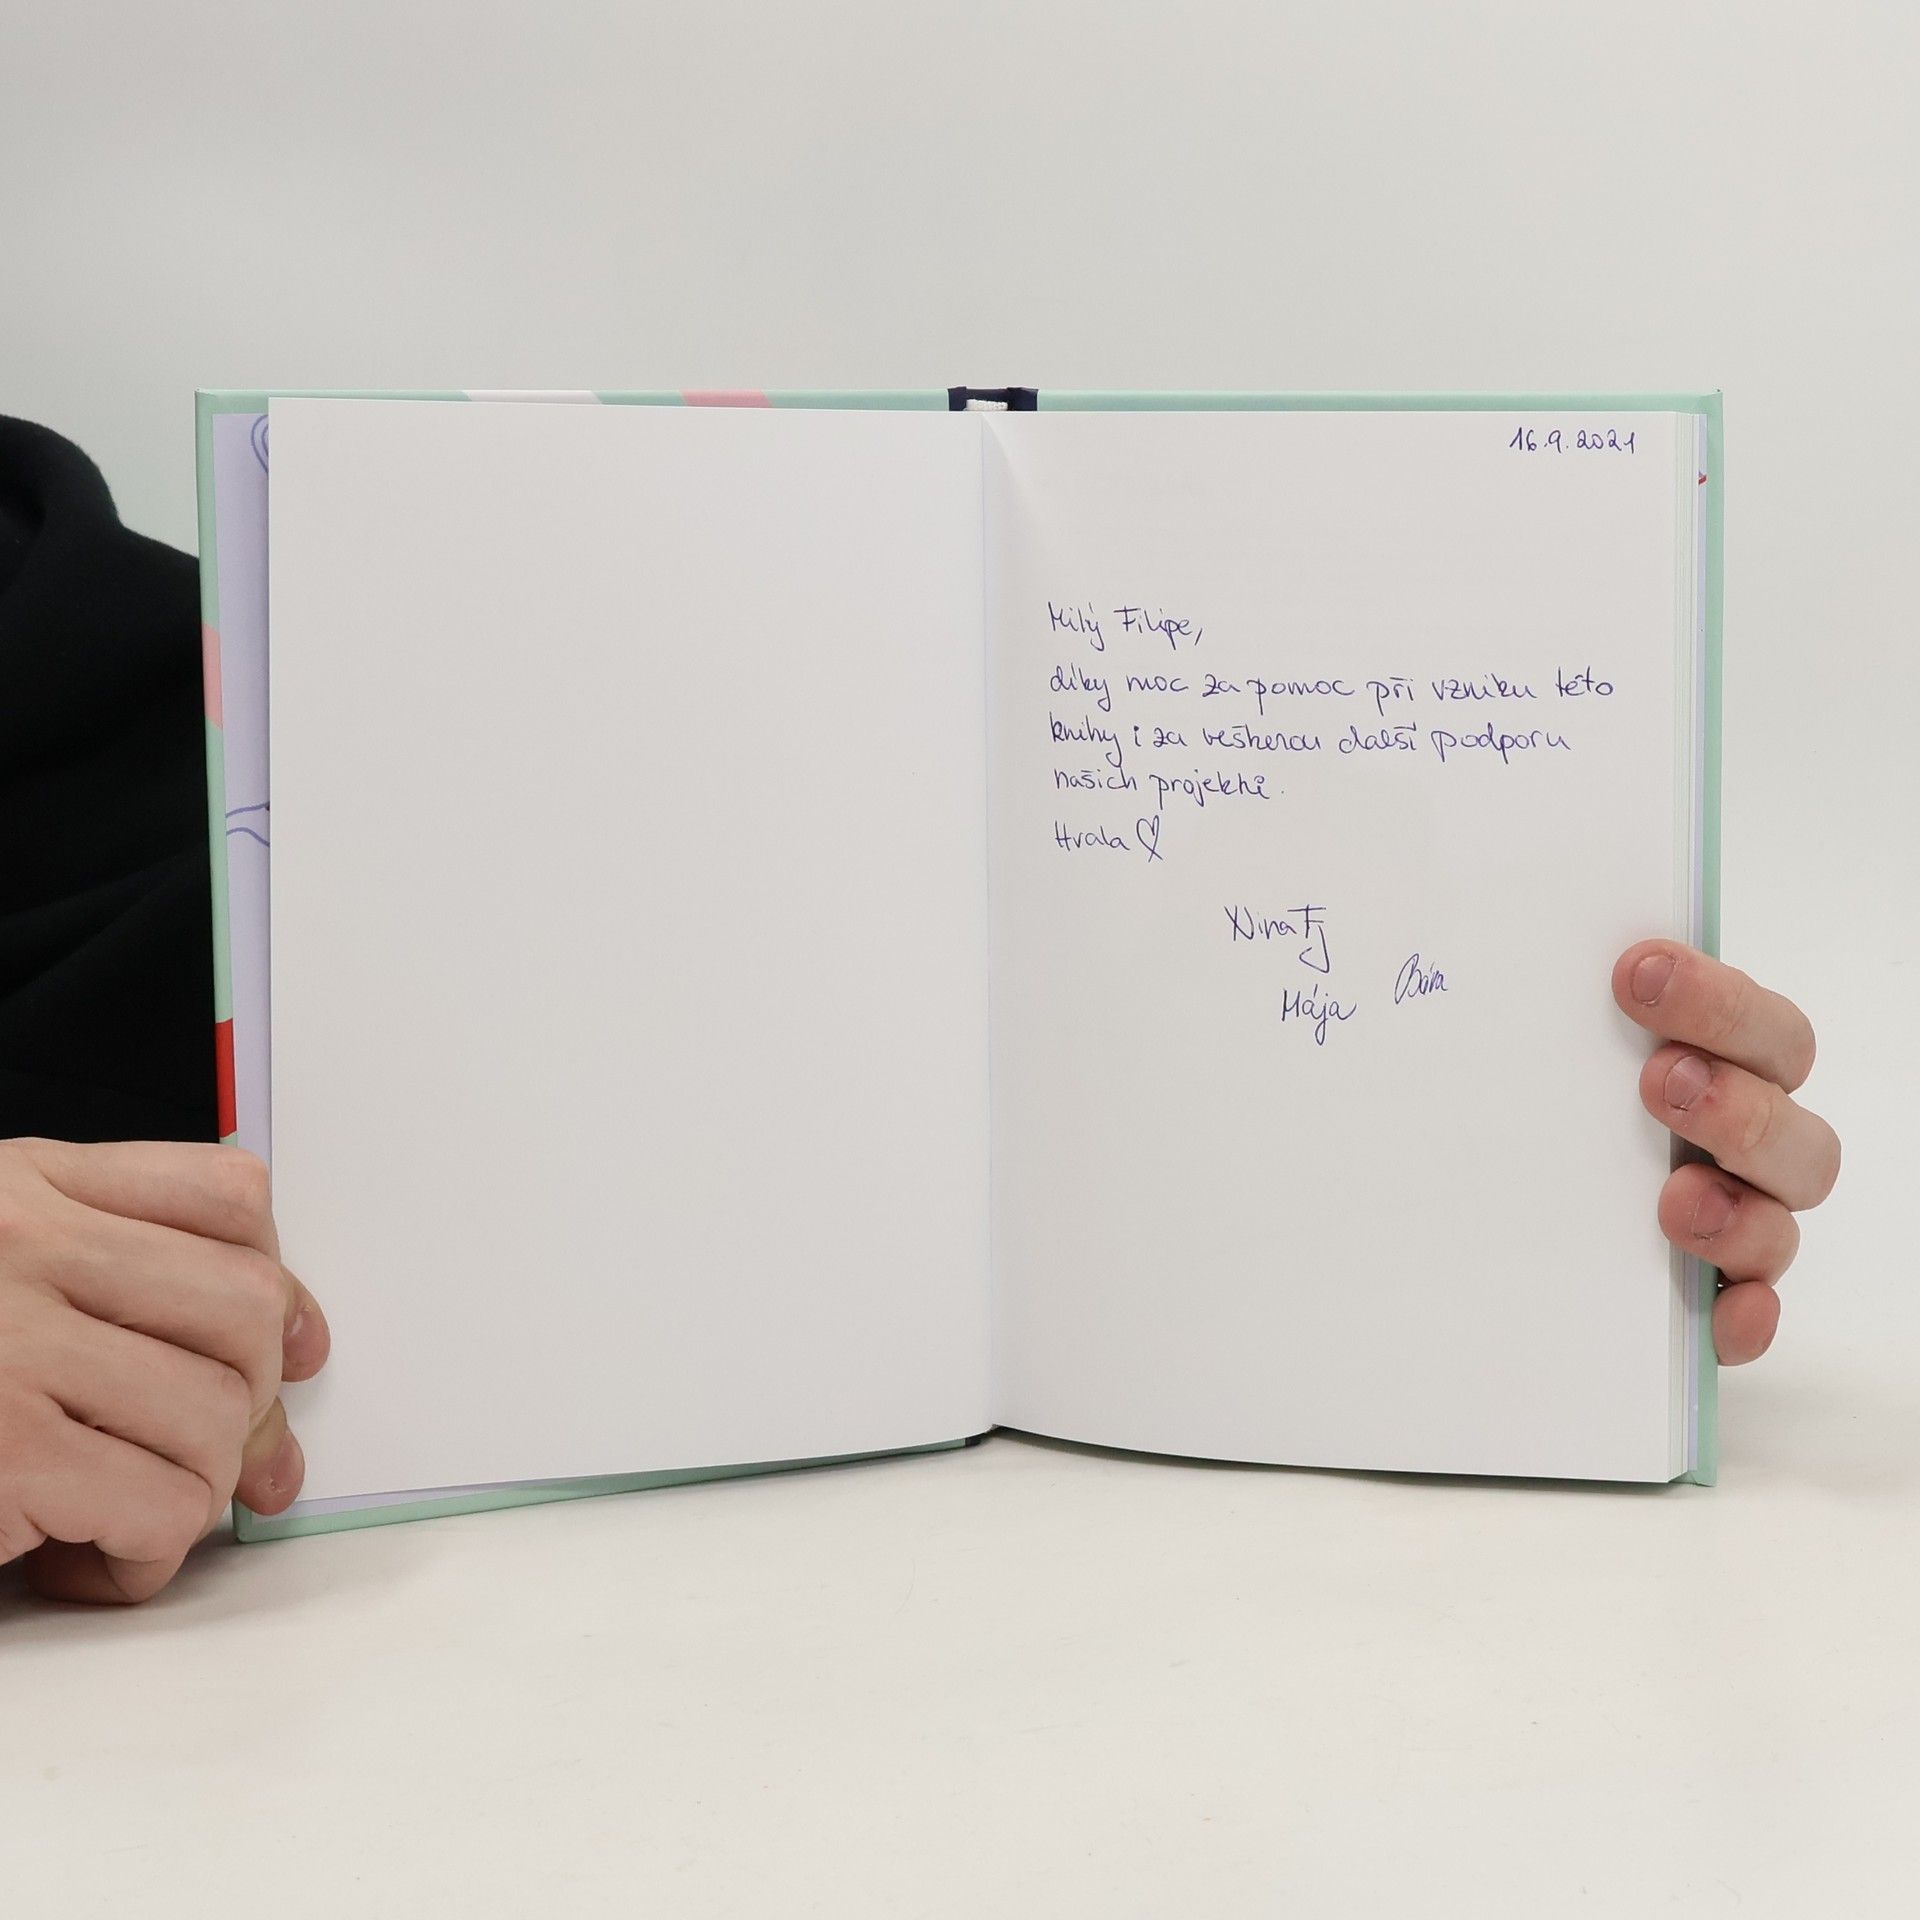 16.9.2021
Milý Filipe,
díky moc za pomoc při vzniku této
knihy i za veškerou další podporu
našich projektů.
Hvala ♡
Nina
Mája Bára